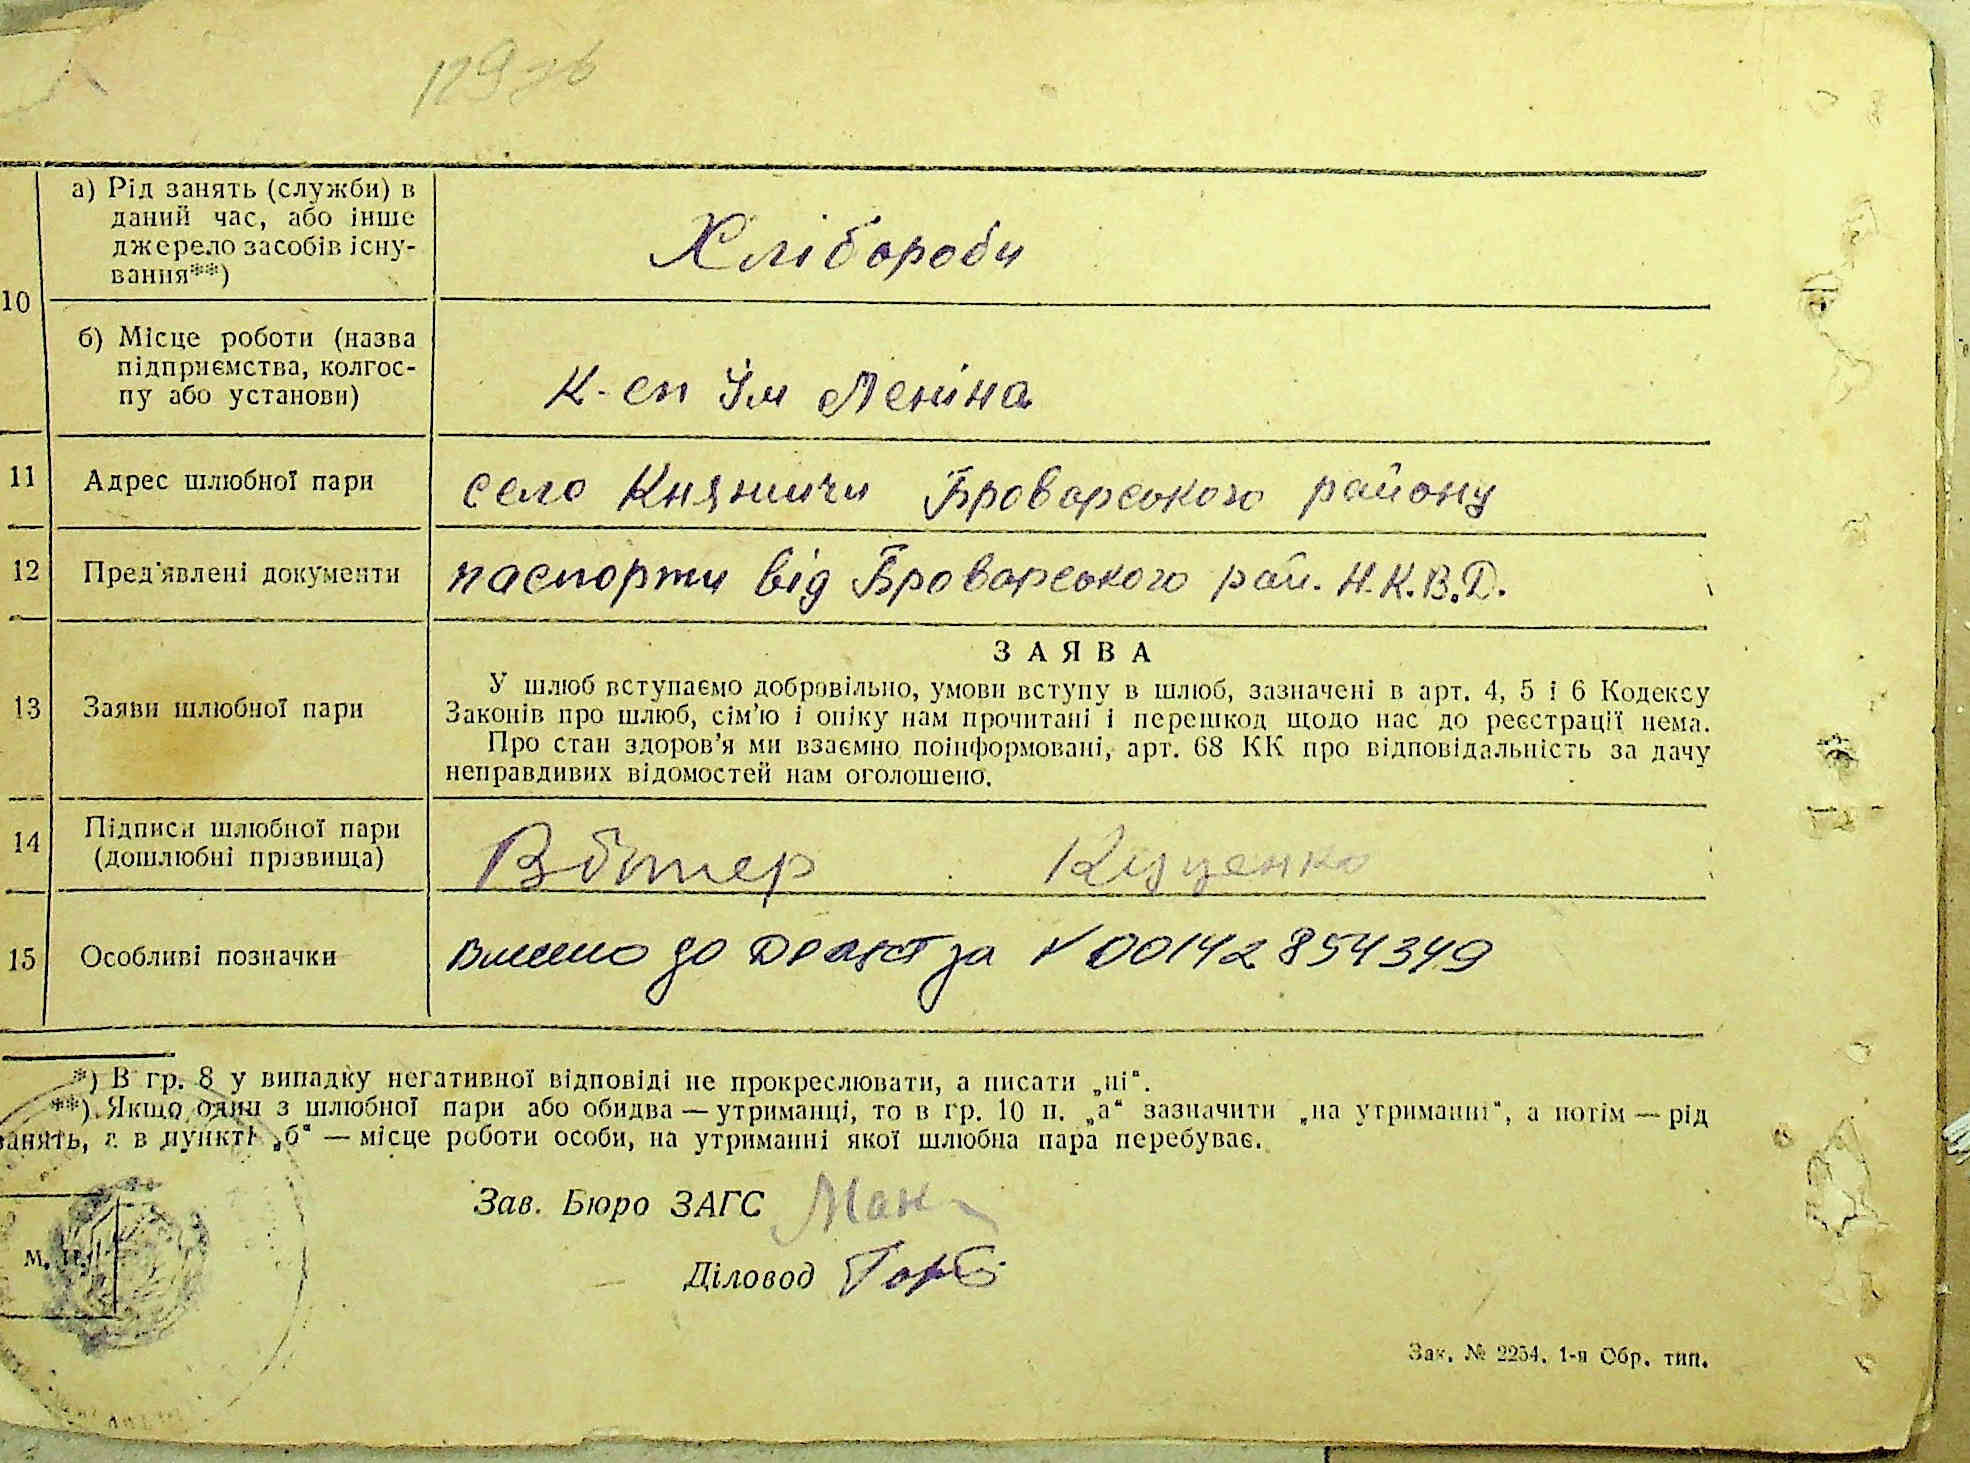 а) Рід занять (служби) в
даний час, або інше
джерело засобів існу-
вання**)
Хлібороби
10
б) Місце роботи (назва
підприємства, колгос-
пу або установи)
К-сп Ім Леніна
11
Адрес шлюбної пари
село Княжичи Броварського району
12
Пред'явлені документи
паспорти від Броварського рай. Н.К.В.Д.
13
Заяви шлюбної пари
ЗАЯВА
У шлюб вступаємо добровільно, умови вступу в шлюб, зазначені в арт. 4, 5 і 6 Кодексу
Законів про шлюб, сім'ю і опіку нам прочитані і перешкод щодо нас до реєстрації нема.
Про стан здоров'я ми взаємно поінформовані, арт. 68 КК про відповідальність за дачу
неправдивих відомостей нам оголошено.
14
Підписи шлюбної пари
(дошлюбні прізвища)
Куценко
15
Особливі позначки
Внесено до ДРАЦСГ за № 00142854349
*) В гр. 8 у випадку негативної відповіді не прокреслювати, а писати „ні“.
**) Якщо один з шлюбної пари або обидва — утриманці, то в гр. 10 п. „а“ зазначити „на утриманні“, а потім — рід
занять, а в пункті „б“ — місце роботи особи, на утриманні якої шлюбна пара перебуває.
Зав. Бюро ЗАГС
М. П.
Діловод
Зак. № 2254. 1-я Обр. тип.